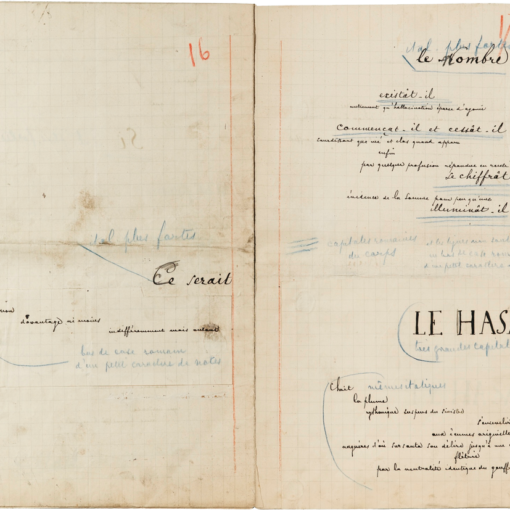 16
ital. plus fortes
Ce serait
davantage ni moins
indifféremment mais autant
bas de casse romain
d'un petit caractère de notes
ital. plus fortes
le Nombre
existât-il
autrement qu'hallucination éparse d'agonie
commençât-il et cessât-il
sourdant que nié et clos quand apparu
enfin
par quelque profusion répandue en rareté
se chiffrât
évidence de la somme pour peu qu'une
illuminât-il
capitales romaines
du corps
LE HASA
très grandes capital
Choit
la plume
rythmique suspens du sinistre
s'ensevelir
aux écumes originelles
naguères d'où sursauta son délire jusqu'à une
flétrie
par la neutralité identique du gouffre